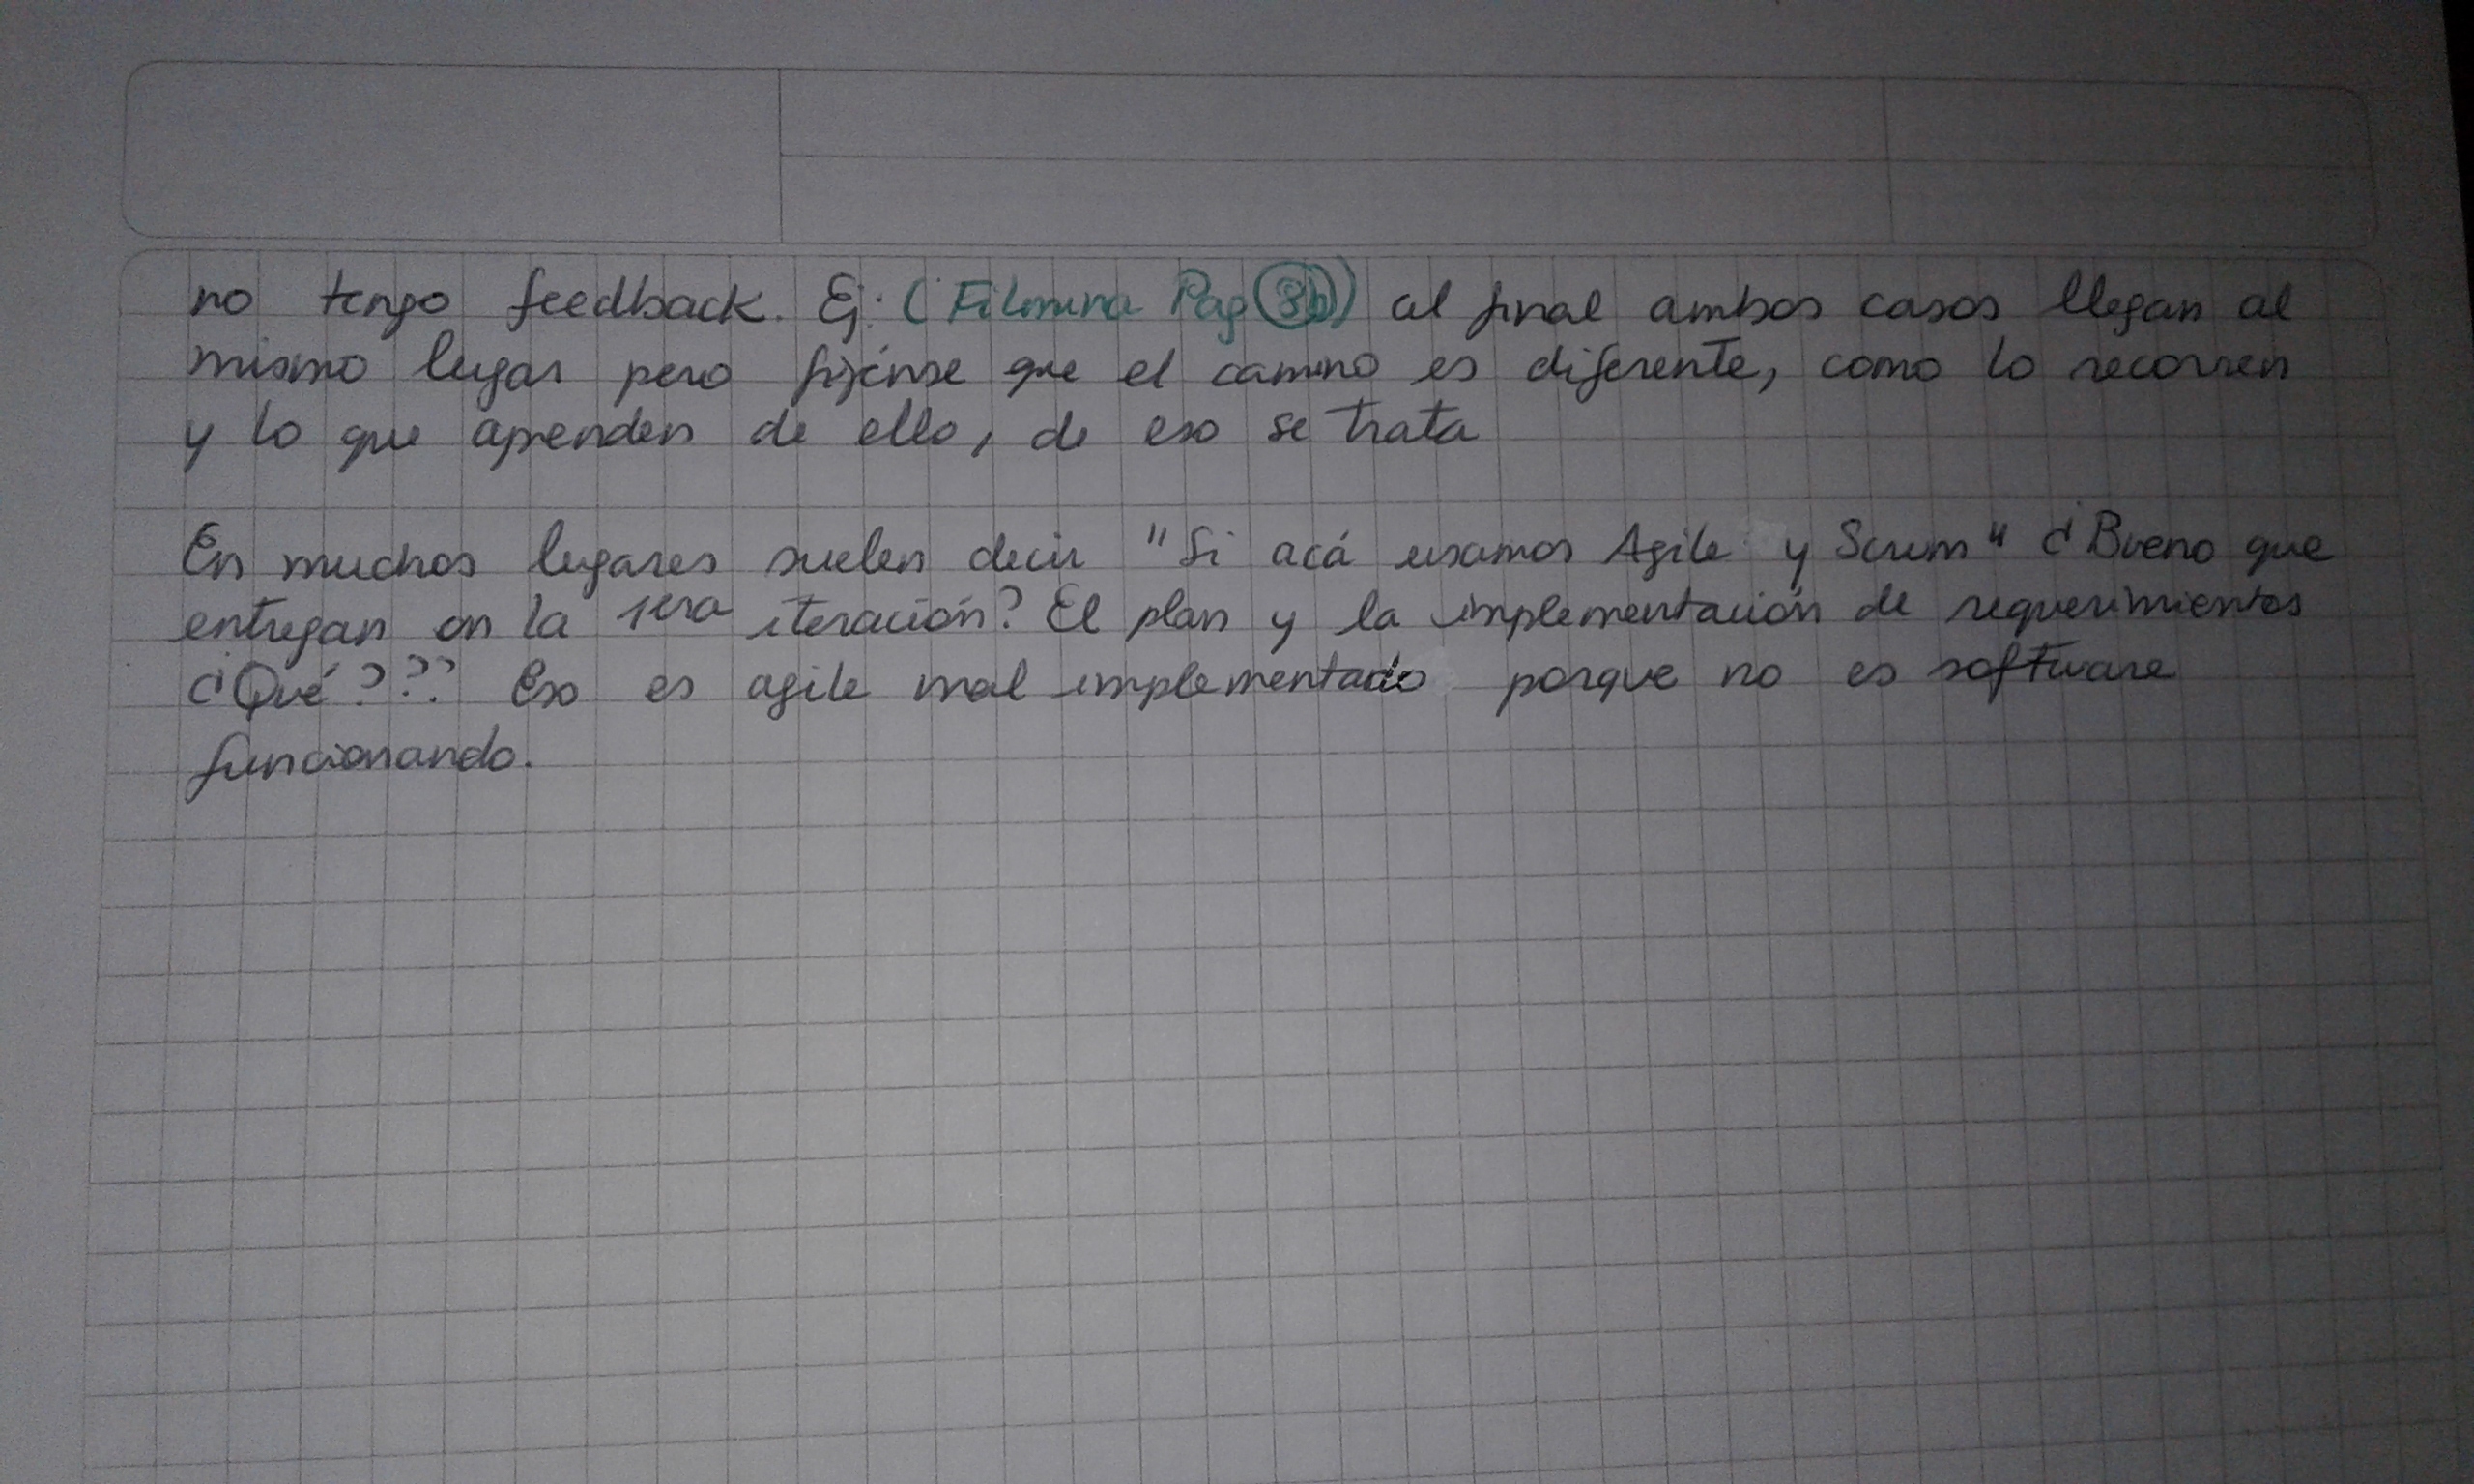 no tengo feedback. Ej: (Filmina Pag 3b) al final ambos casos llegan al
mismo lugar pero fijénse que el camino es diferente, como lo recorren
y lo que aprenden de ello, de eso se trata
En muchos lugares suelen decir "Si acá usamos Agile y Scrum" ¿Bueno que
entregan en la 1era iteración? El plan y la implementación de requerimientos
¿Qué??? Eso es agile mal implementado porque no es software
funcionando.